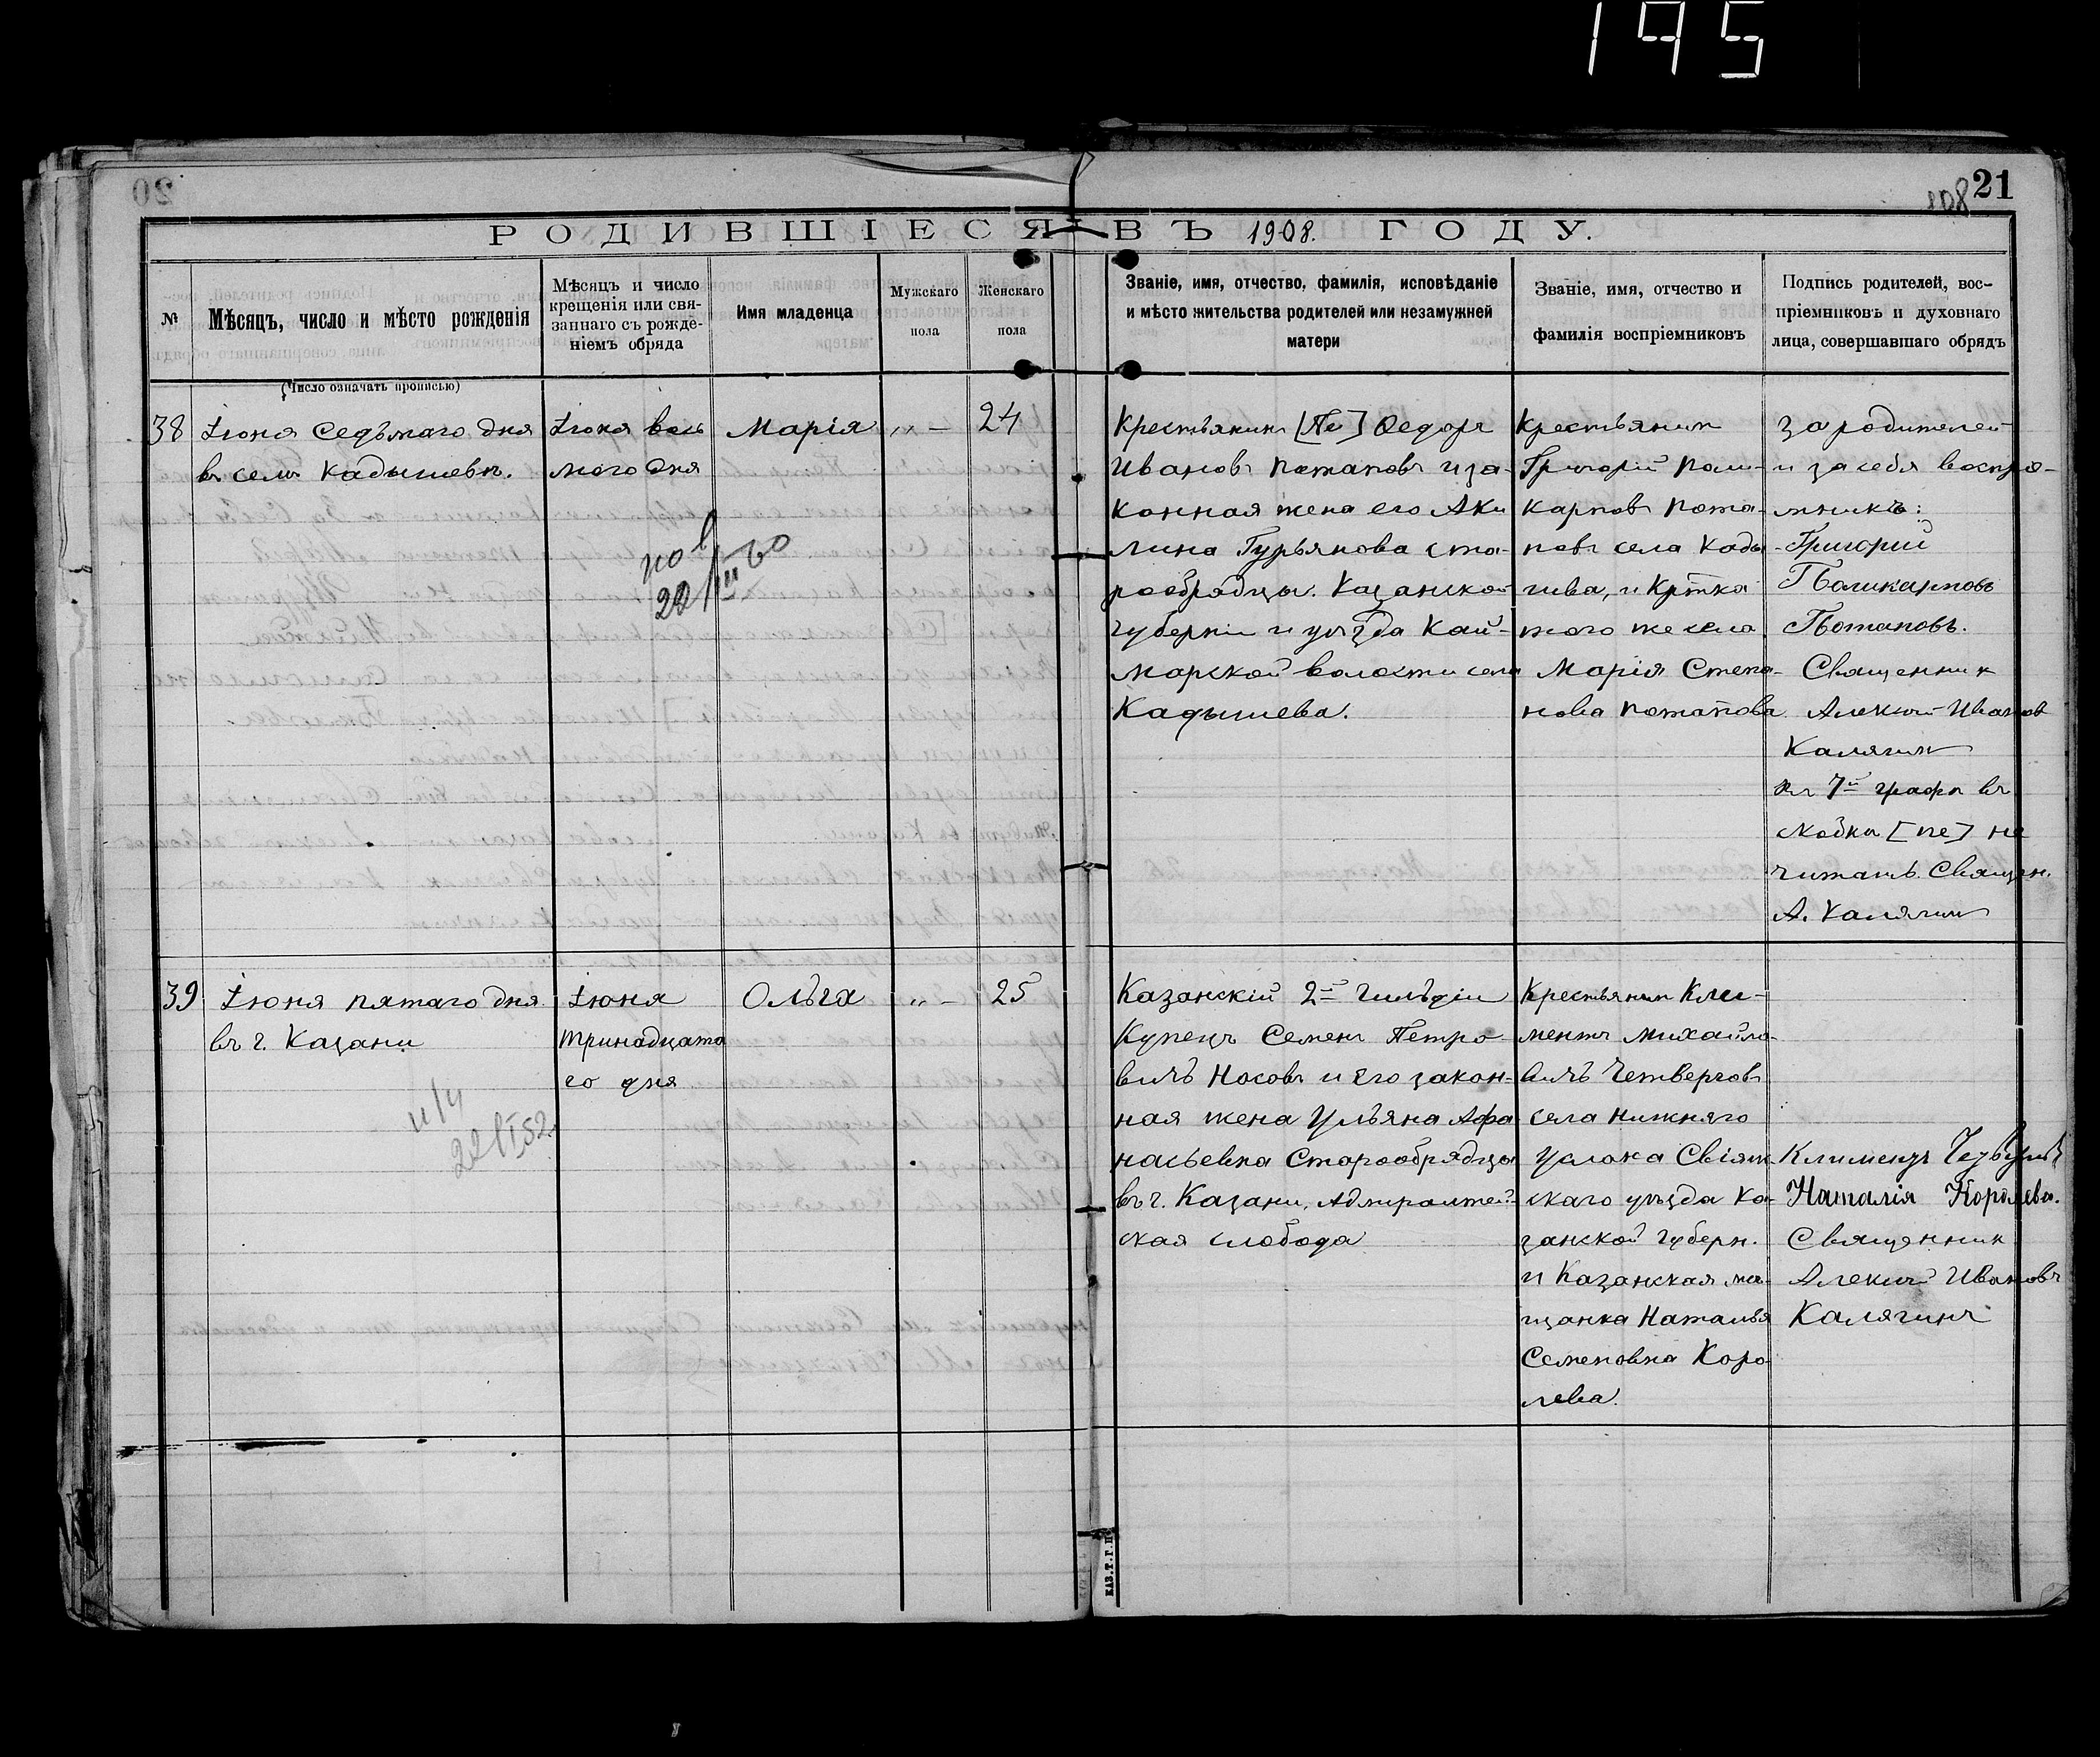 195
20
108 21
РОДИВШІЕСЯ ВЪ 1908. ГОДУ.
№
Мѣсяцъ, число и мѣсто рожденія
Мѣсяцъ и число
крещенія или свя-
заннаго съ рожде-
ніемъ обряда
Имя младенца
Мужскаго
пола
Женскаго
пола
Званіе, имя, отчество, фамилія, исповѣданіе
и мѣсто жительства родителей или незамужней
матери
Званіе, имя, отчество и
фамилія воспріемниковъ
Подпись родителей, вос-
пріемниковъ и духовнаго
лица, совершавшаго обрядъ
(Число означать прописью)
38
Іюня седьмаго дня
въ селѣ Кадышевѣ.
Іюня вось
мого дня
Марія
„ —
24
Крестьянинъ [Пе] Ѳедоръ
Ивановъ Потаповъ и за-
конная жена его Аки
лина Гурьянова ста-
рообрядцы. Казанской
губерніи и уѣзда Кай-
марской волости села
Кадышева.
Крестьянинъ
Григорій Поли-
карповъ Пота-
повъ села Кады-
шева, и Крттка
того же села
Марія Степа-
нова Потапова
За родителей
и за себя воспріе-
мникъ:
Григорій
Поликарповъ
Потаповъ.
Священник
Алексій Иванов
Калягин
въ 7й графѣ въ
скобки [пе] не
читать. Священ.
А. Калягин
39
Іюня пятаго дня
въ г. Казани
22/I 52
Іюня
тринадцата
го дня
Ольга
„ —
25
Казанскій 2й гильдіи
Купецъ Семенъ Петро-
вичъ Носовъ и его закон-
ная жена Ульяна Афа
насьевна старообрядцы
въ г. Казани, Адмиралтей-
ская слобода
Крестьянин Кли-
ментъ Михайло-
вичъ Четверговъ
села Нижняго
Услона Свіяж-
скаго уѣзда Ка-
занской губерн.
и Казанская мѣ-
щанка Наталья
Семеновна Коро
лева.
Климентъ Четверговъ
Наталія Королева.
Священник
Алексій Ивановъ
Калягинъ
КАЗ.Т.Г.П.